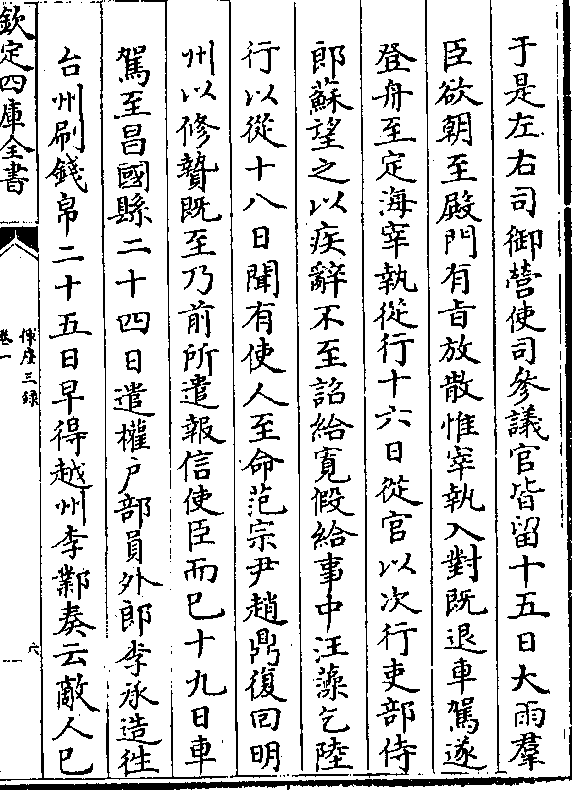 于是左右司御營使司參議官皆留十五日大雨羣
臣欲朝至殿門有旨放散惟宰執入對既退車駕遂
登舟至定海宰執從行十六日從官以次行吏部侍
郎蘇望之以疾辭不至詔給寛假給事中汪藻乞陸
行以從十八日聞有使人至命范宗尹趙鼎復回明
州以修贄既至乃前所遣報信使臣而已十九日車
駕至昌國縣二十四日遣權户部員外郎李承造徃
台州刷錢帛二十五日早得越州李鄴奏云敵人已
欽定四庫全書
揮麈三録
卷一
六